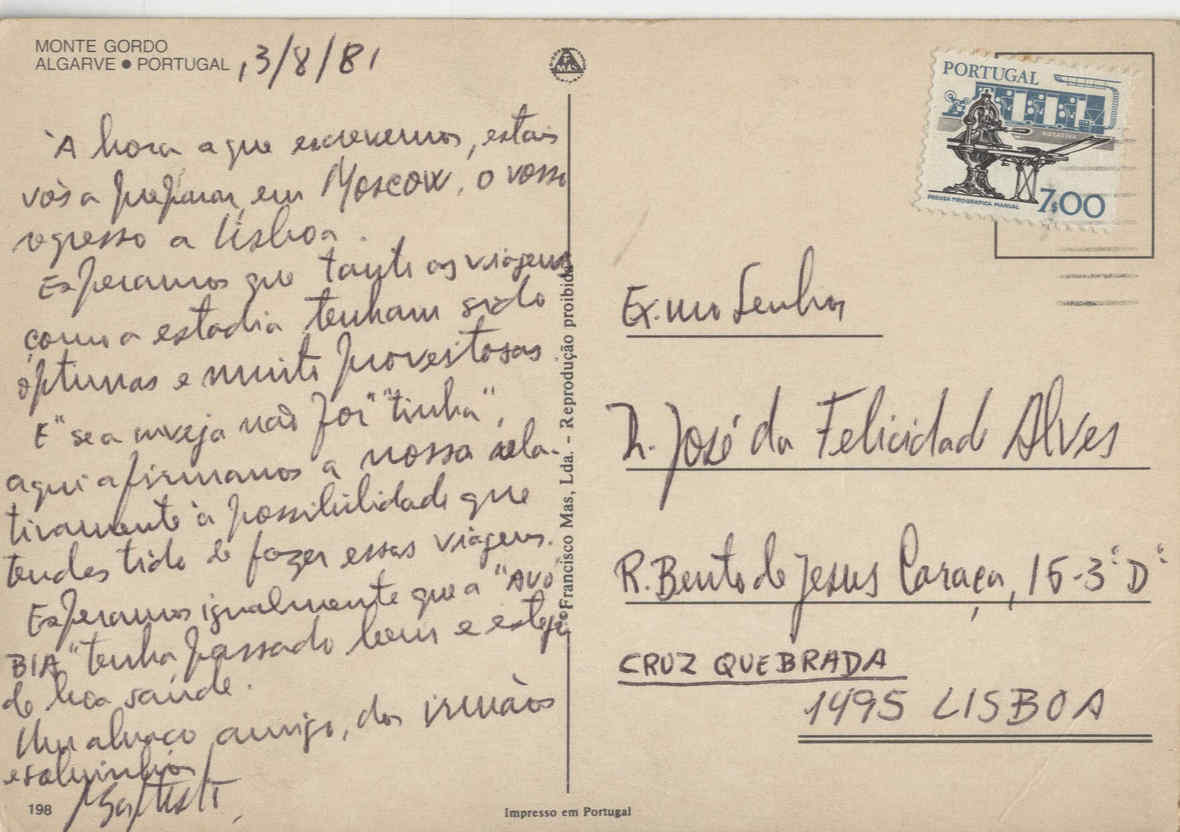 MONTE GORDO
ALGARVE ● PORTUGAL, 3/8/81
À hora a que escrevemos, estais
vós a preparar, em Moscow, o vosso
regresso a Lisboa.
Esperamos que tanto as viagens
como a estadia tenham sido
óptimas e muito proveitosas.
E "se a inveja não foi" "tinha",
aqui afirmamos a nossa rela-
tivamente à possibilidade que
tendes tido de fazer essas viagens.
Esperamos igualmente que a "AVÓ
BIA" tenha passado bem e esteja
de boa saúde.
Um abraço amigo, dos irmãos
e sobrinhos
198
F. MAS
© Francisco Mas, Lda. - Reprodução proibida
Impresso em Portugal
PORTUGAL
ROTATIVA
PRENSA TIPOGRÁFICA MANUAL
7$00
Ex.mo Senhor
Dr. José da Felicidad Alves
R. Bento de Jesus Caraça, 15-3º Dº
CRUZ QUEBRADA
1495 LISBOA